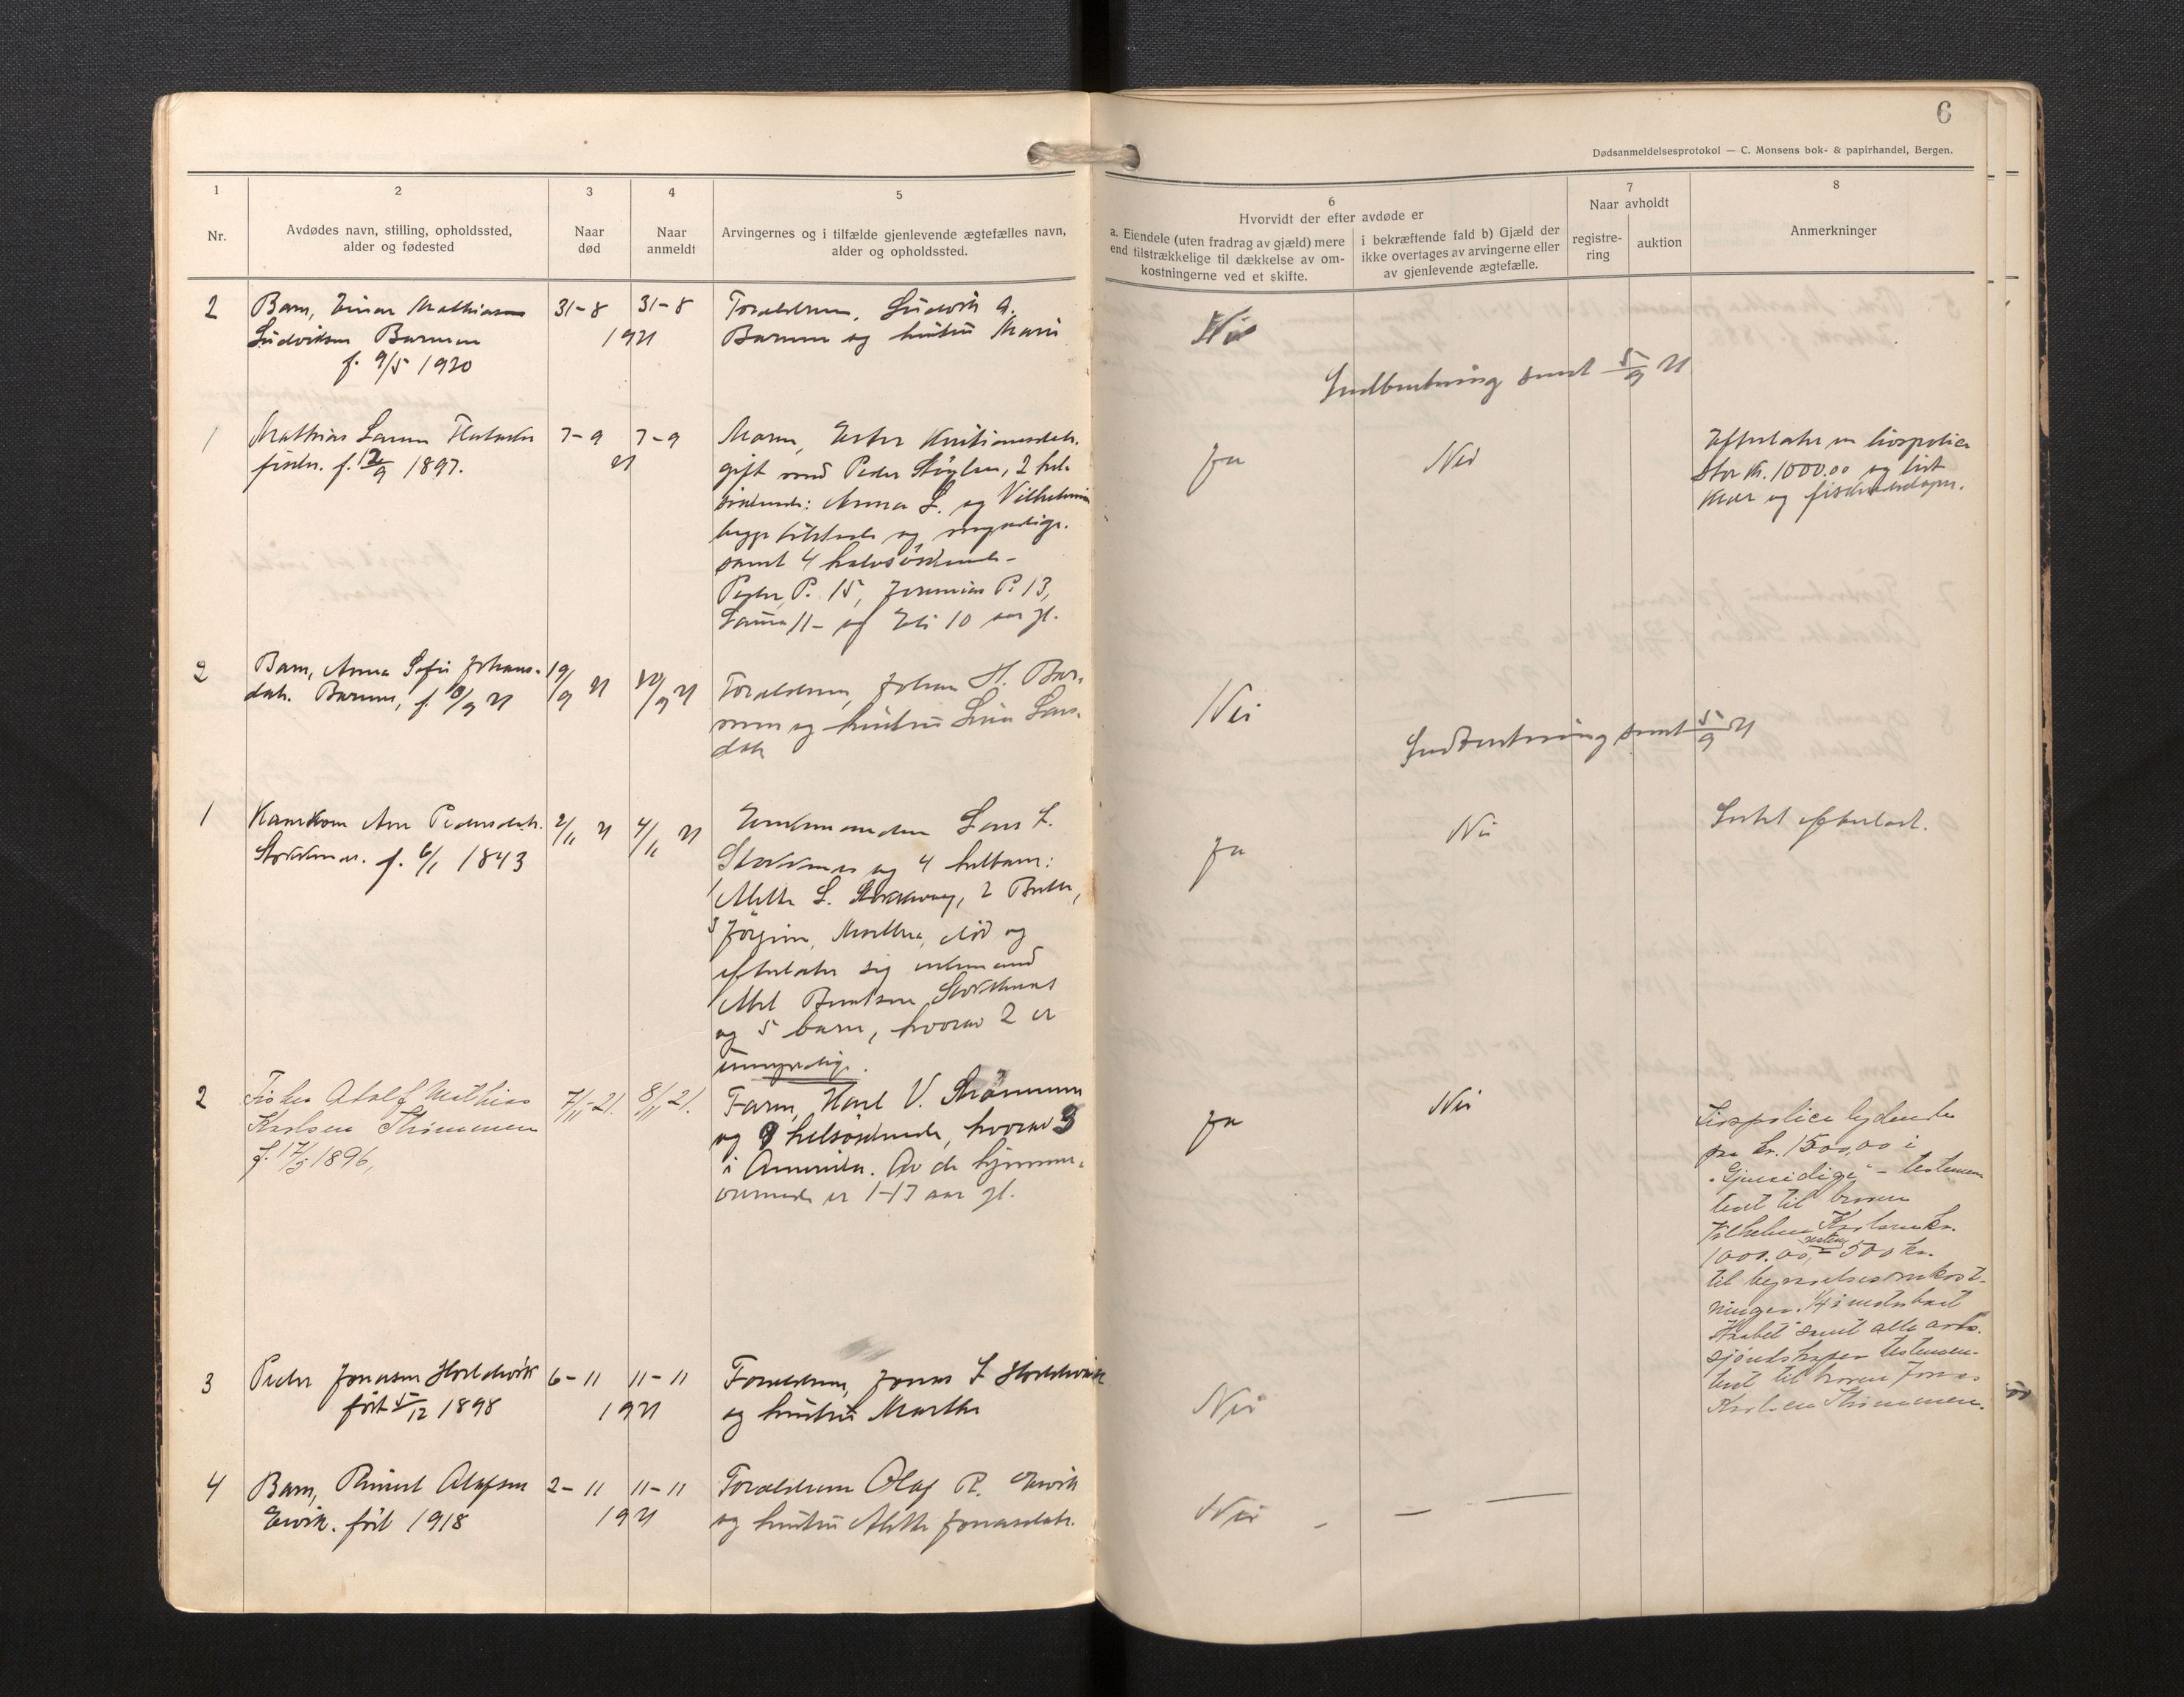 6
Dødsanmeldelsesprotokol — C. Monsens bok- & papirhandel, Bergen.
1
Nr.
2
Avdødes navn, stilling, opholdssted,
alder og fødested
3
Naar
død
4
Naar
anmeldt
5
Arvingernes og i tilfælde gjenlevende ægtefælles navn,
alder og opholdssted.
6
Hvorvidt der efter avdøde er
a. Eiendele (uten fradrag av gjæld) mere
end tilstrækkelige til dækkelse av om-
kostningerne ved et skifte.
i bekræftende fald b) Gjæld der
ikke overtages av arvingerne eller
av gjenlevende ægtefælle.
7
Naar avholdt
registre-
ring
auktion
8
Anmerkninger
2
Barn, Einar Mathias
Ludviksen Barmen
f. 9/5 1920
31-8
31-8
1921
Forældrene, Ludvik A.
Barmen og hustru Marie
Nei
Indberetning sendt 5/9 21
1
Mathias Larsen
fisker. f. 12/9 1897.
7-9
7-9
21
Moren, Ester Kristiansdatr.
gift med Peder Støylen, 2 hel-
søskende: Anna L. og Vilhelmine
begge tilstede og myndige.
samt 4 halvsøskende -
Peder P. 15, Jeremias P. 13,
Laura 11- og Eli 10 aar gl.
ja
Nei
Efterlater en livspolice
stor kr. 1000.00 og litt
klær og fiskeredskaper.
2
Barn, Anna Sofie Johans-
datr. Barmen, f. 18/9 21
19/9 21
20/9 21
Forældrene, Johan H. Bar-
men og hustru Lina Lars-
datr
Nei
Indberetning sendt 5/9 21
1
Kaarkone Ane Pedersdatr.
Stokknes. f. 6/1 1843
2/11 21
4/11 21
Enkemanden Lars L.
Stokknes og 4 helbarn:
1 Mette L.
3 Jørgine, Marthe, død og
efterlater sig enkemand
Abel Berntsen Stokknes
og 5 barn, hvorav 2 er
umyndige.
ja
Nei
Intet efterladt.
2
Fisker Adolf Mathias
Karlsen Strømmen
f. 17/5 1896,
7/11-21.
8/11 21.
Faren, Karl V. Strømmen
og 9 helsøskende, hvorav 3
i Amerika. Av de hjemme-
værende er 1-17 aar gl.
ja
Nei
Livspolice lydende
paa kr. 1500,00 i
"Gjensidige" - testamen-
tert til broren
Vilhelm Karlsen kr.
1000.00, resten 500 kr.
til begravelsesomkost-
ninger. 1/4 i motorbaat
"Haabet" samt alle arbs.
sjøredskaper testamen-
tert til broren Jonas
Karlsen Strømmen.
3
Peder Jonassen Hoddevik
født 5/12 1898
6-11
11-11
1921
Forældrene, Jonas L Hoddevik
og hustru Marthe
Nei
4
Barn, Reinert Olafsen
Ervik. født 1918
2-11
11-11
1921
Forældrene Olaf R. Ervik
og hustru Alette Jonasdatr.
Nei - - —